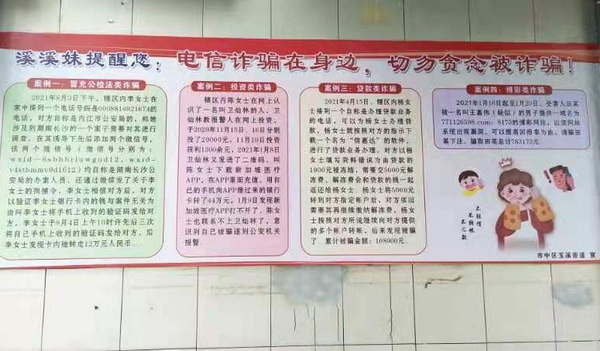 溪溪妹提醒您：电信诈骗在身边，切勿贪念被诈骗！
案例一：冒充公检法类诈骗
2021年9月3日下午，辖区内李女士在
家中接到一个电话号码是0008816921674的
电话，对方自称是内江市公安局的，称她
涉及到湖南长沙的一个案子需要对其进行
调查，在其诱导下先后添加两个微信号，
该两个微信号（微信号分别为：
公安局的办案人员，还通过微信发了关于李女
士的拘捕令。李女士相信对方后，对方
以验证李女士银行卡内的钱与案件无关为
由叫李女士将手机上收到的验证码发给对
方，李女士于9月4日上午10时许先后三次
将自己手机上收到的验证码发给对方，后
李女士发现卡内被转走12万元人民币
案例二：投资类诈骗
辖区内陈女士在网上认
识了一名叫卫灿林的人，卫
灿林教报警人在网上投资，
于2020年11月15日、16日分别
投了20000元，11月19日投资
获利1300余元，2021年1月8日
卫灿林又发送了二维码，叫
陈女士下载新加坡医疗
APP，在APP里面充值，用自
己的手机向APP绑过来的银行
卡转了44万元。1月9日发现新
加坡医疗APP打不开了，陈女
士也联系不上卫灿林了，意
识到自己被骗遂到公安机关
报警
案例三：贷款类诈骗
2021年4月15日，辖区内杨女
士接到一个自称是办理贷款业务
的电话，可以为杨女士办理贷
款，杨女士就按照对方的指示下
载一个名为“信惠达”的软件，
进行了贷款业务办理，对方以杨
女士填写资料错误为由贷款的
1000元被冻结，需要交5000元解
冻费，解冻费会和贷款的钱一起
返还给杨女士，杨女士将5000元
转到对方指定帐户后，对方依旧
需要其再继续缴纳解冻费，杨女
士按照对方所说继续向对方提供
的多个帐户转帐，后来发现被骗
了 累计被骗金额：108000元。
案例四：博彩类诈骗
2021年1月16日起至1月20日，受害人张某
被一名叫王嘉伟（疑似）的男子提供一域名为
的博彩网站，以该网站
系统出现漏洞，可以博离回报率为由，诱骗张
某下注，骗取张某总计783175元
不轻信
不转账
市中区玉溪街道 宣